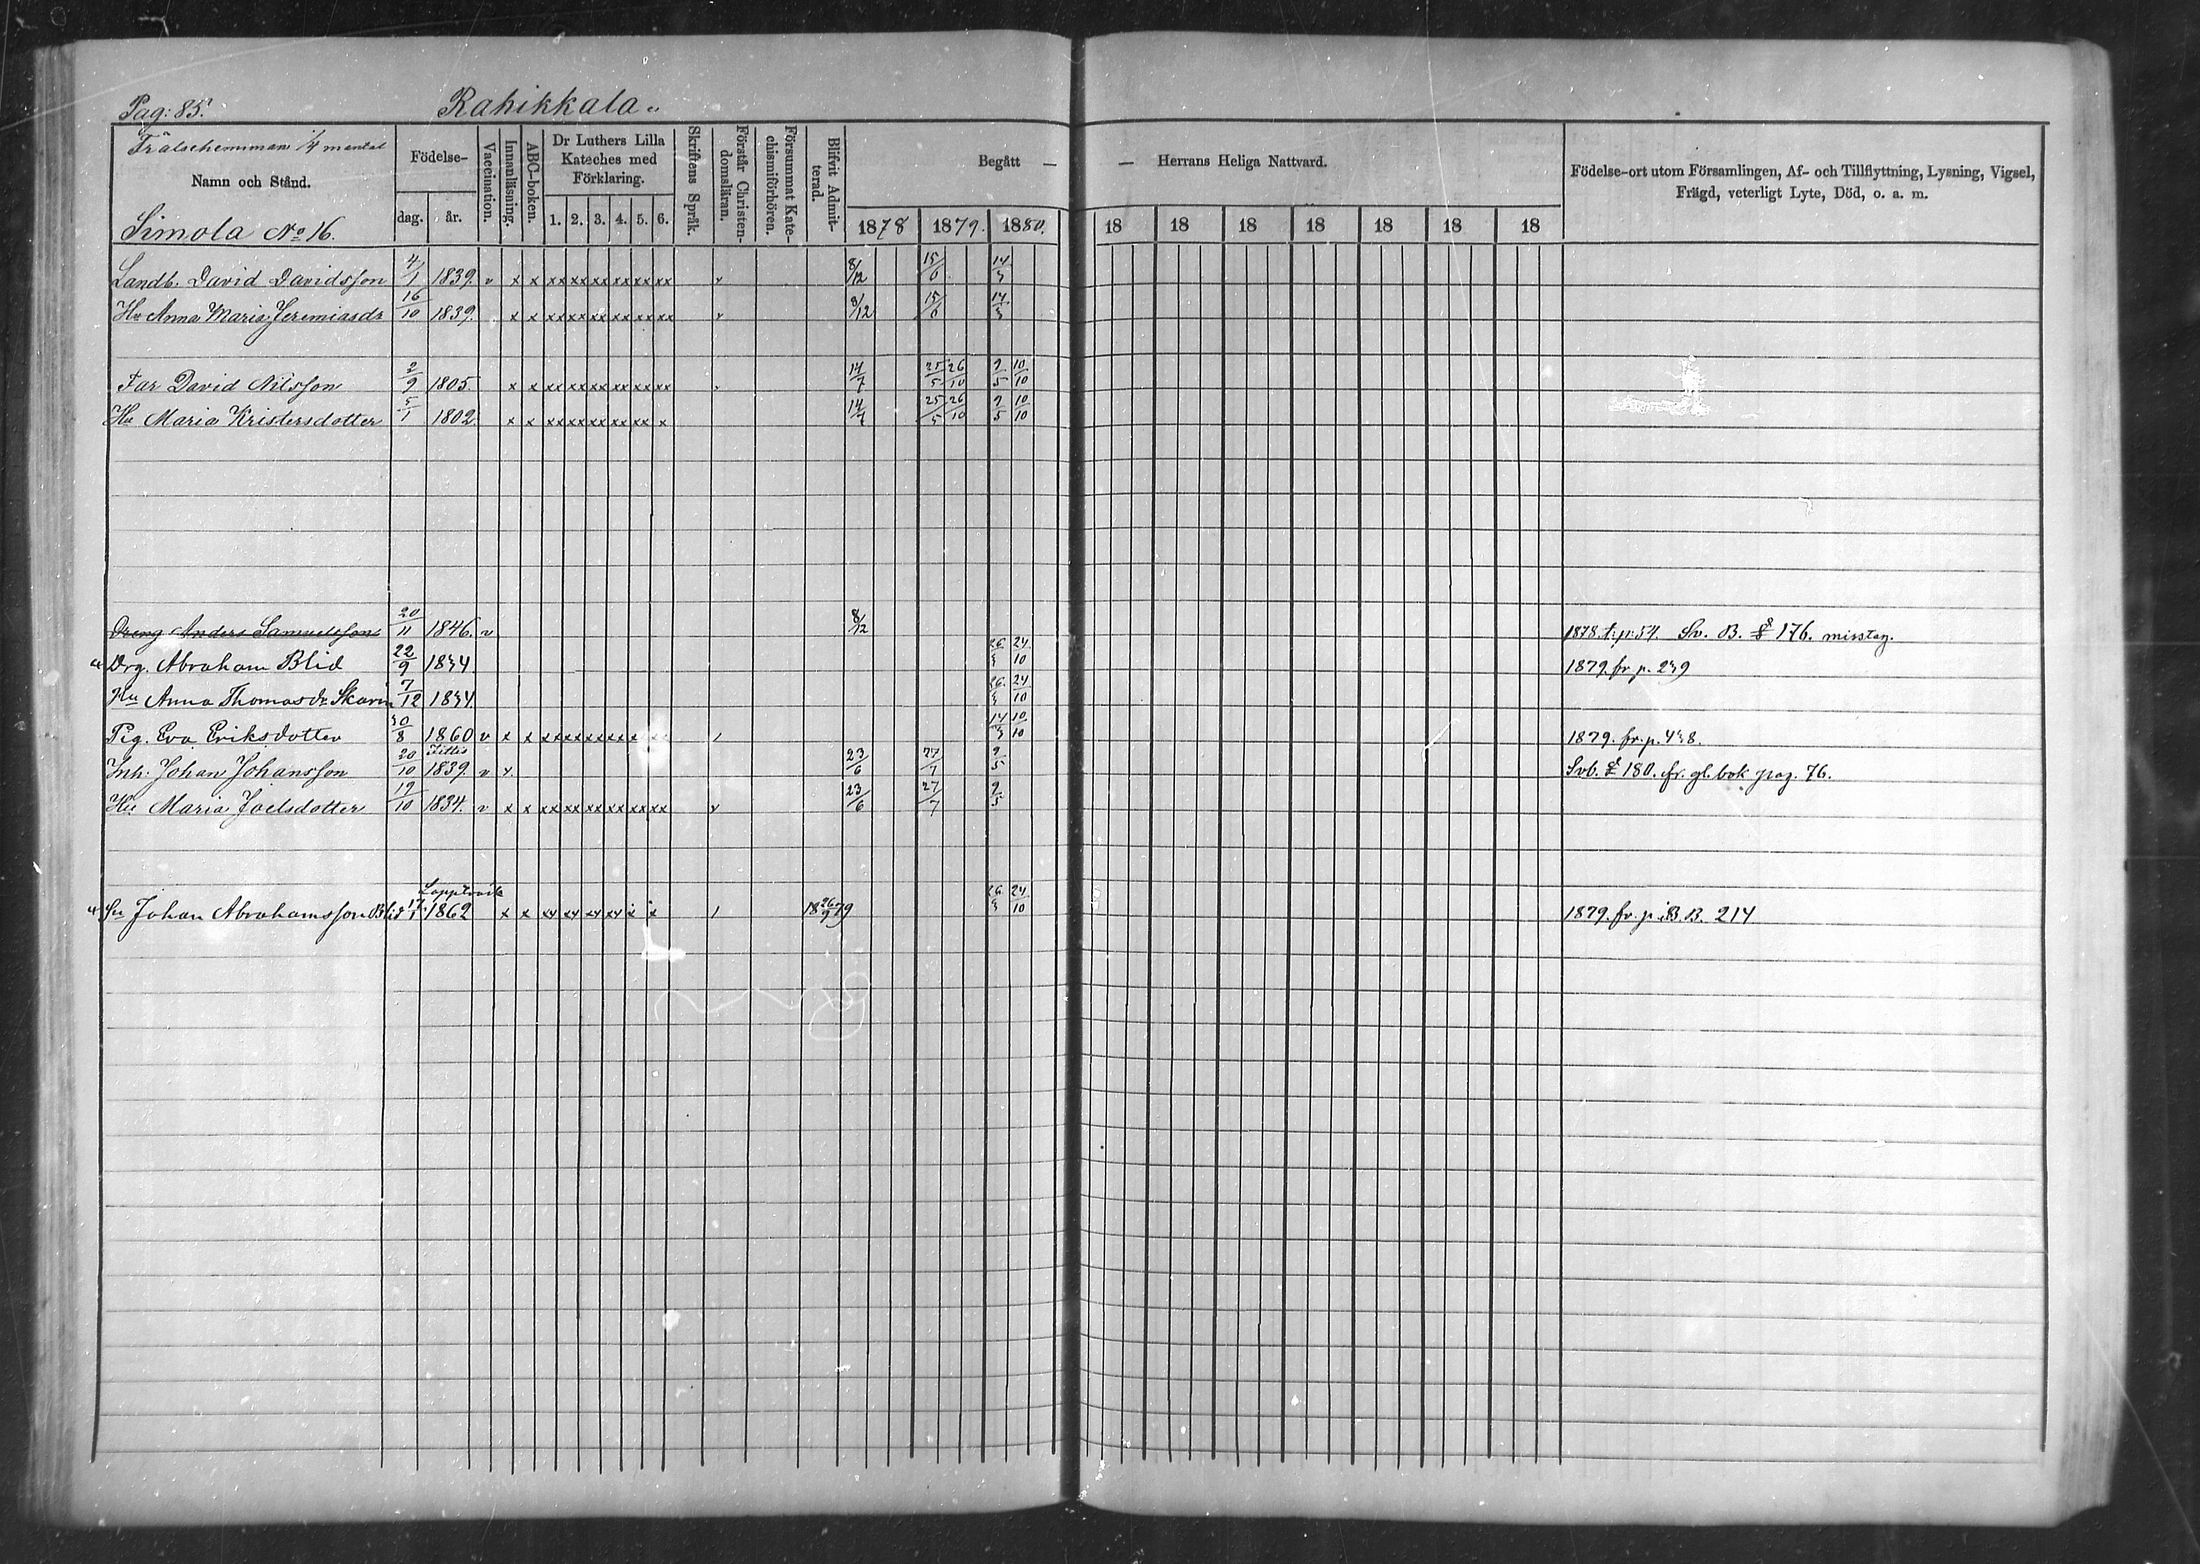 Pag: 85. Rahikkala
Frälsehemman 1/4 mantal
Namn och Stånd.
Simola No 16.
Födelse-
dag. år.
Vaccination.
Innanläsning.
ABC-boken.
Dr Luthers Lilla Kateches med Förklaring.
1. 2. 3. 4. 5. 6.
Skriftens Språk.
Förstår Christendomsläran.
Försummat Katechismiförhören.
Blifvit Admitterad.
Begått — — Herrans Heliga Nattvard.
1878 1879. 1880. 18 18 18 18 18 18 18
Födelse-ort utom Församlingen, Af- och Tillflyttning, Lysning, Vigsel,
Frägd, veterligt Lyte, Död, o. a. m.
Landb. David Davidsson 4/1 1839. v x x xx xx xx xx xx xx v 8/12 15/6 14/3
Hu Anna Maria Jeremiasdr 16/10 1839. x x xx xx xx xx xx xx v 8/12 15/6 14/3
Far David Nilsson 2/9 1805. x x xx xx xx xx xx xx 14/7 25/5 26/10 9/5 10/10
Hu Maria Kristersdotter 5/1 1802. x x xx xx xx xx xx x 14/7 25/5 26/10 9/5 10/10
Dreng Anders Samuelsson 20/11 1846. v 8/12 1878. t. p. 54. Sv. B. 176. misstag.
Drg. Abraham Blid 22/9 1834 26/3 24/10 1879. fr. p. 239
Hu Anna Thomasdr Skarin 7/12 1834. 26/3 24/10
Pig. Eva Eriksdotter 30/8 1860 v x x xx xx xx xx x xx / 14/3 10/10 1879. fr. p. 438.
Inh. Johan Johansson 20/10 Tittis 1839. v x. 23/6 27/7 9/5 Svb. 180. fr. gl. bok pag. 76.
Hu Maria Joelsdotter 19/10 1834. v x x xx xx xx xx xx xx v 23/6 27/7 9/5
Lapptväsk
Sn Johan Abrahamsson Blid 17/1 1862 x x xx xx xx xx x x / 18 26/9 79 26/3 24/10 1879. fr. p. B. B. 214